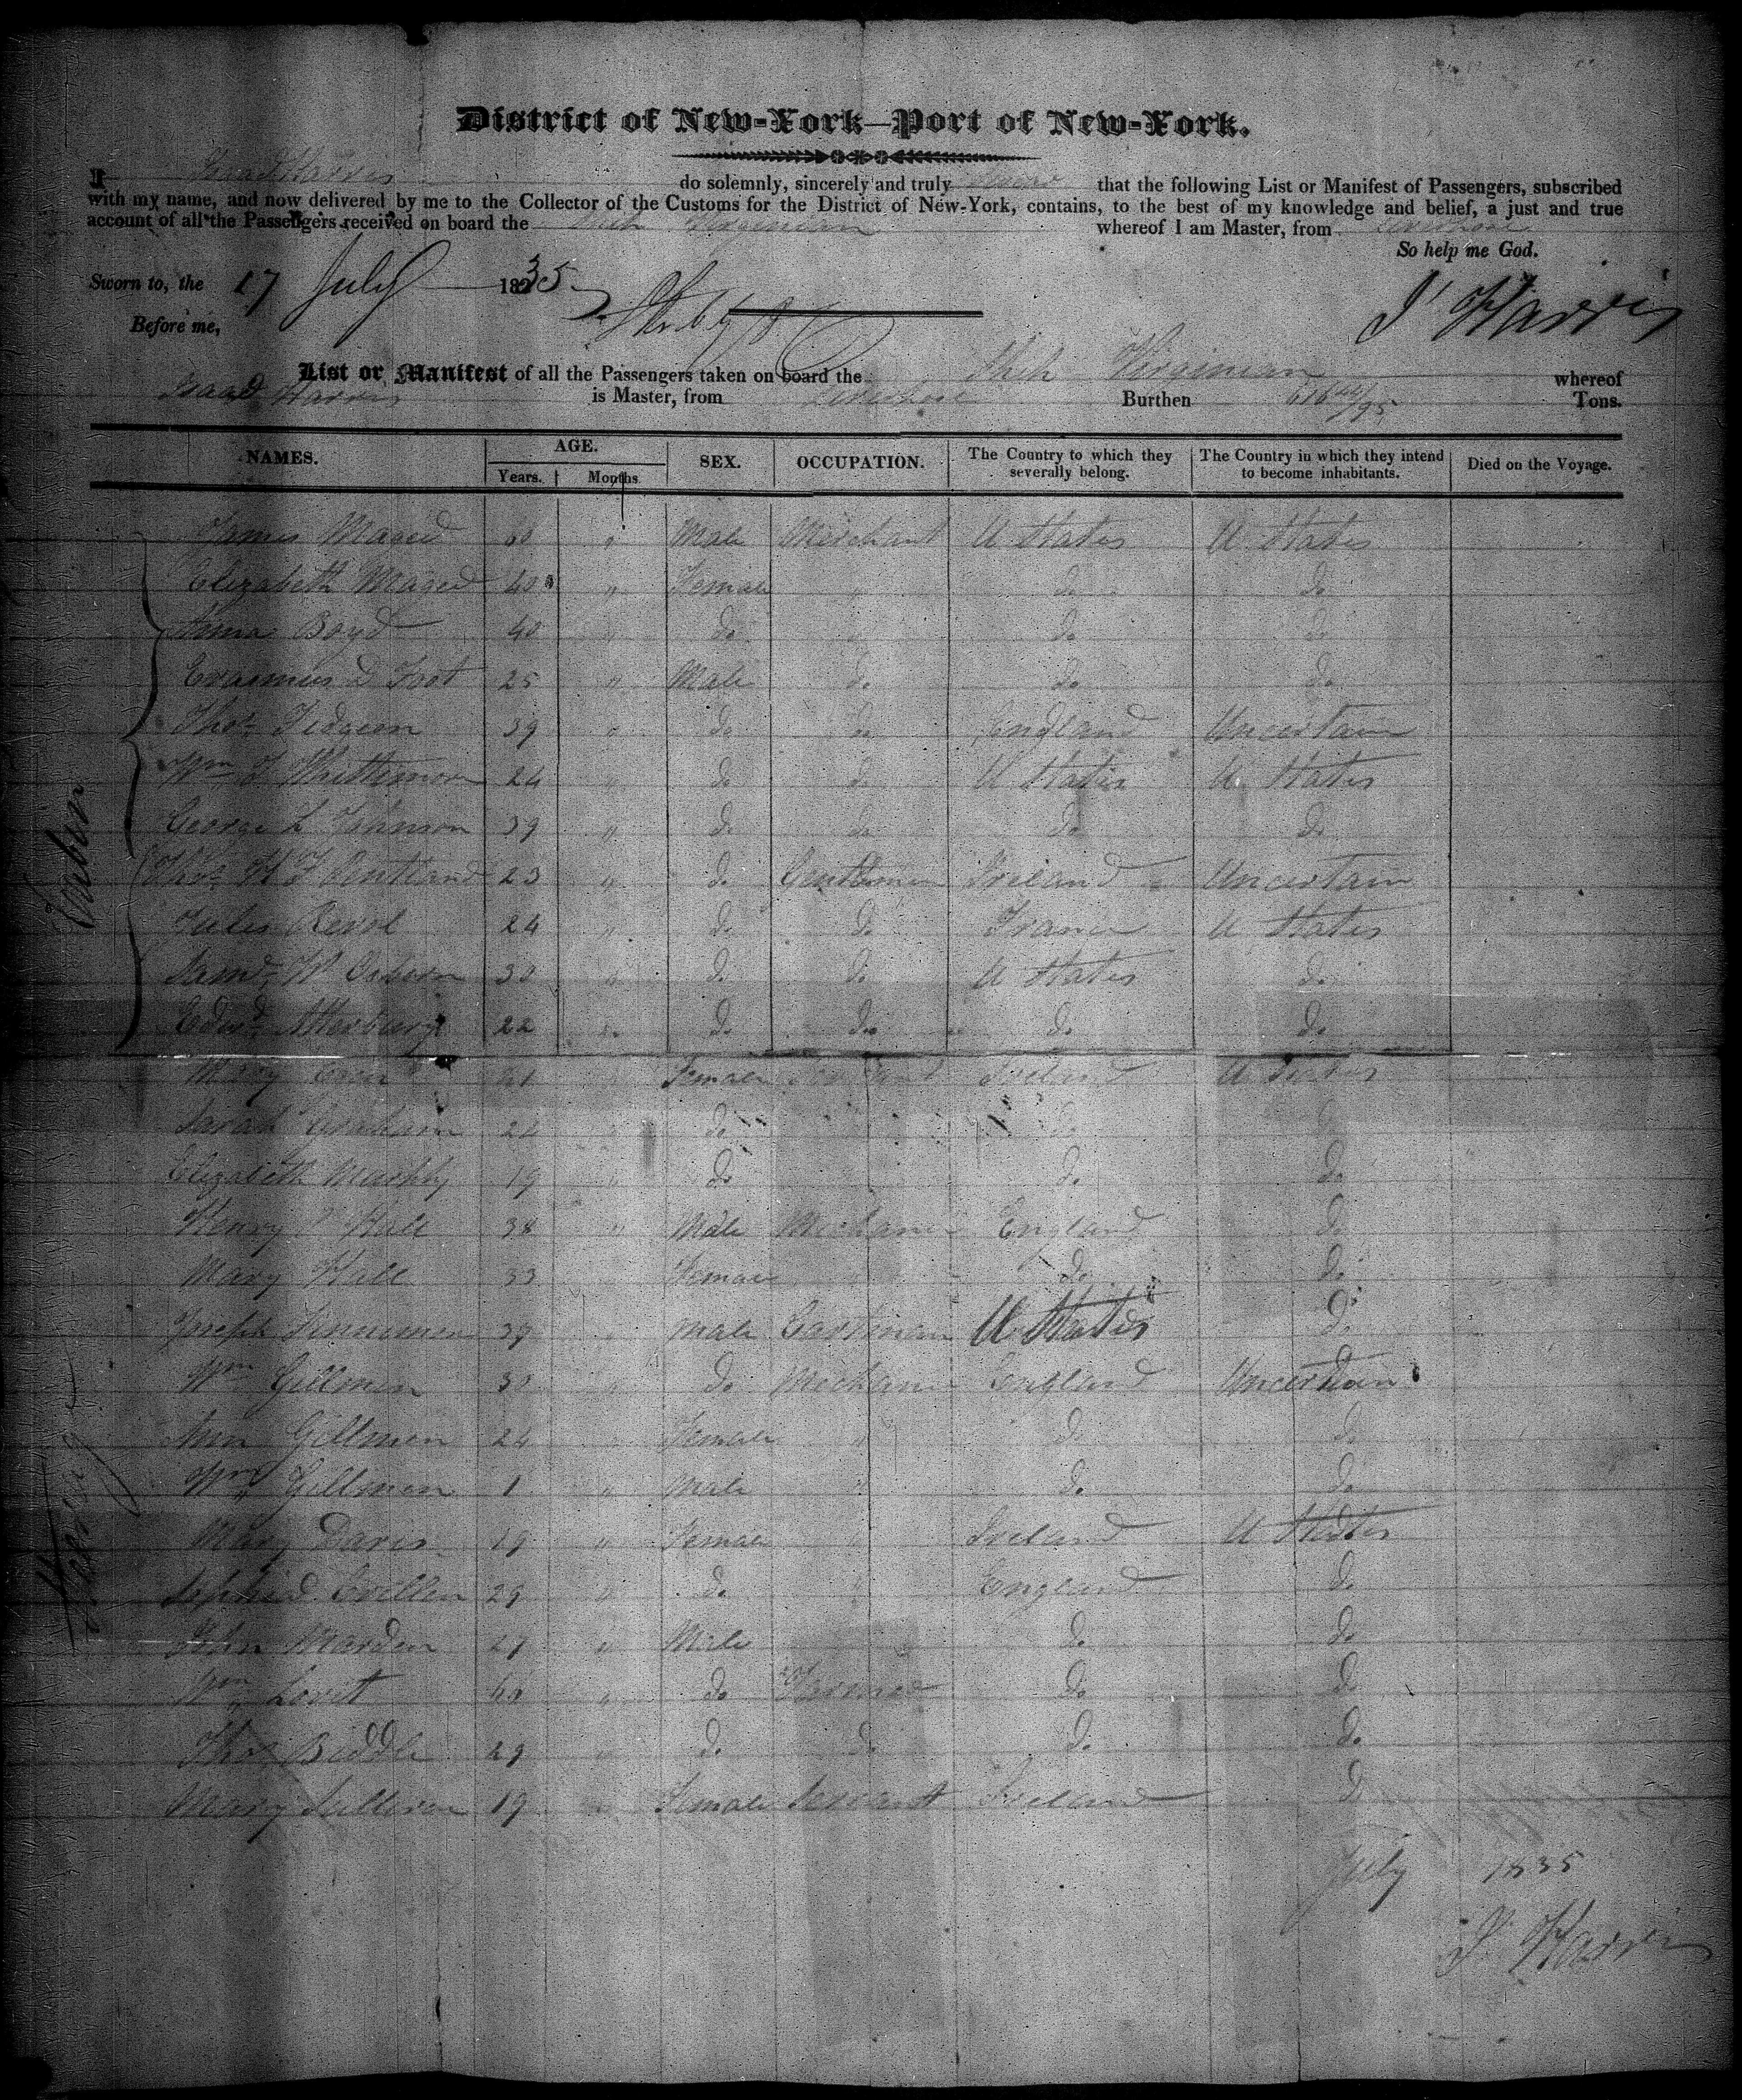 District of New-York—Port of New-York.
I Isaac Harris do solemnly, sincerely and truly swear that the following List or Manifest of Passengers, subscribed
with my name, and now delivered by me to the Collector of the Customs for the District of New-York, contains, to the best of my knowledge and belief, a just and true
account of all the Passengers received on board the Ship Virginian whereof I am Master, from Liverpool
So help me God.
Sworn to, the 17 July 1835
I Harris
Before me,
List or Manifest of all the Passengers taken on board the Ship Virginian whereof
Isaac Harris is Master, from Liverpool Burthen 616 Tons.
NAMES. AGE. Years. Months. SEX. OCCUPATION. The Country to which they severally belong. The Country in which they intend to become inhabitants. Died on the Voyage.
James Magee 60 " Male Merchant U States U States
Elizabeth Magee 40 " Female " do do
Boyd 40 " do " do do
Erasmus D Foot 25 " Male do do do
Thos Tidgeen 39 " do do England Uncertain
Wm T Whittimore 24 " do do U States U States
George L Johnson 39 " do do do do
Cabin
Thos 23 " do Gentleman Ireland Uncertain
Jules 24 " do do France U States
Saml W Osborn 30 " do do U States do
Edwd Atterbury 22 " do do do do
Mary 21 " Female Servant Ireland U States
Sarah Graham 22 " do " do do
Elizabeth Murphy 19 " do " do do
Henry Hall 38 " Male Mechanic England do
Mary Hall 33 " Female " do do
Joseph 39 " Male Cartman U States do
Wm Gillmen 30 " do Mechanic England Uncertain
Ann Gillmen 24 " Female " do do
Wm Gillmen 1 " Male " do do
Mary Davis 19 " Female " Ireland U States
Steerage
29 " do " England do
John Marden 27 " Male do do
Wm Lovit 40 " do Farmer do do
Thos Biddle 29 " do do do do
Mary Sullivan 19 " Female Servant Ireland do
July 1835
I Harris